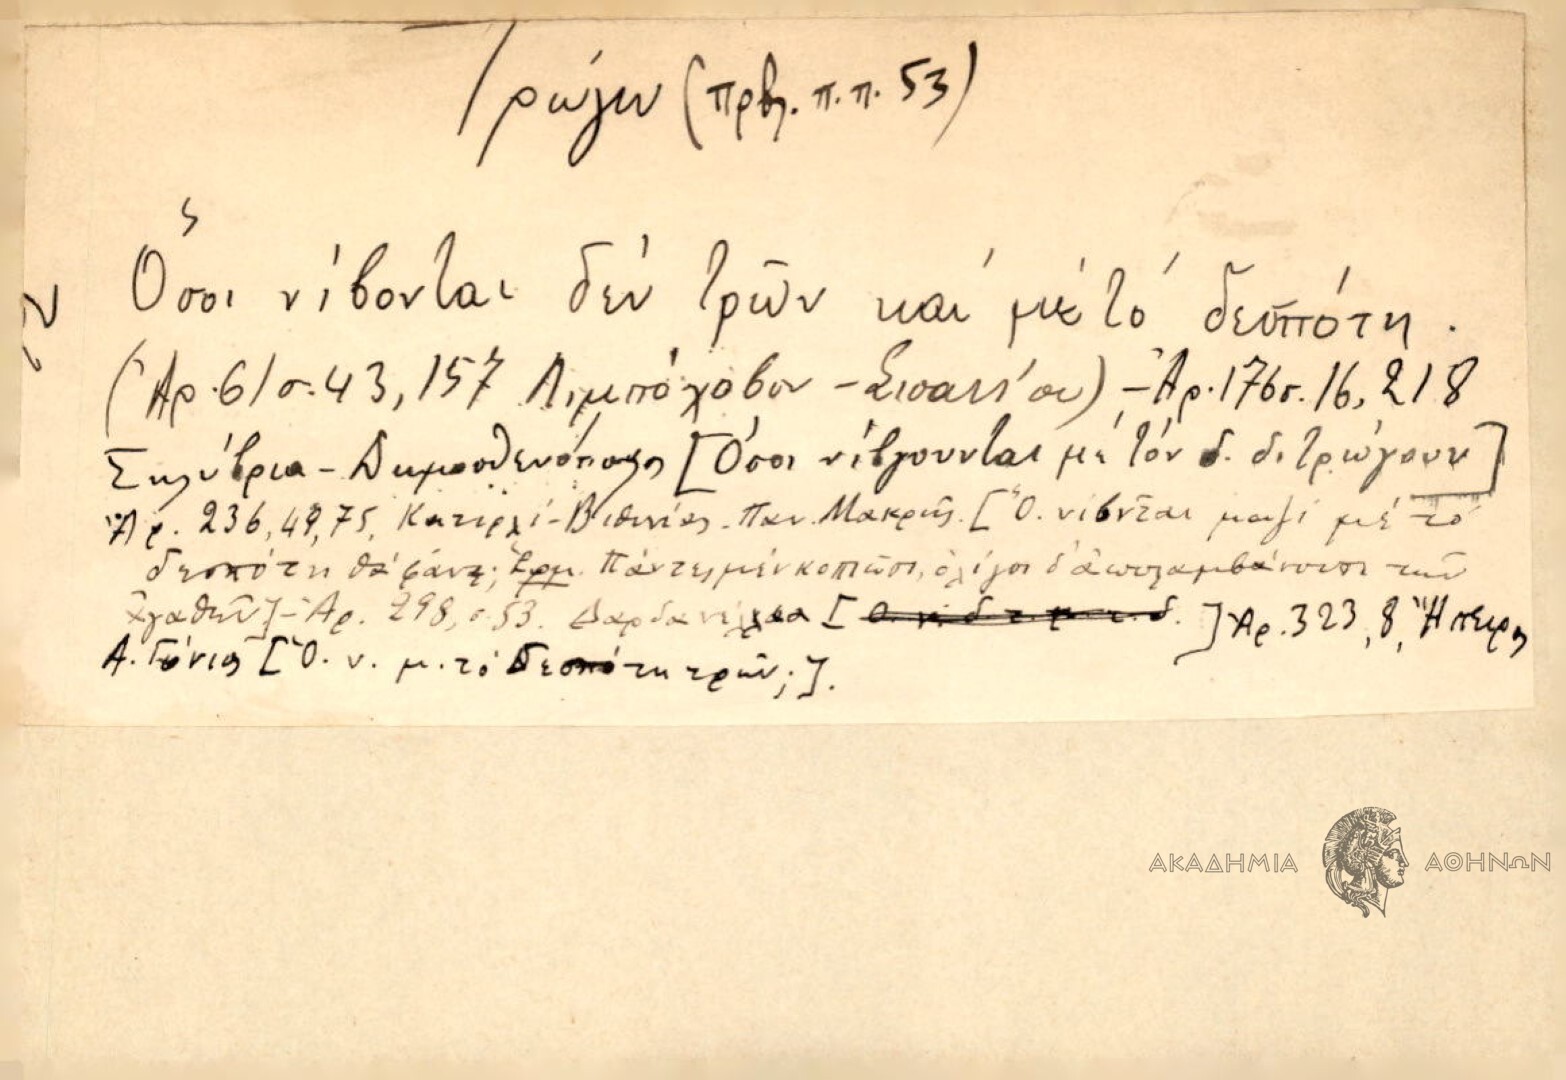 Τρώγω (πρβλ. π.π. 53)
Ὅσοι νίβονται δέν τρῶν καί μέ τό δεσπότη.
(Ἀρ. 61 σ. 43, 157 Λιμπόχοβον – Σισανίου) – Ἀρ. 176 σ. 16, 218
Σηλύβρια – Δημοσθενόπουλος [Ὅσοι νίβγουνται μέ τόν δ. δέ τρώγουν]
Ἀρ. 236, 49, 75, Κατιρλί – Βιθυνίας. Παν. Μακρῆς. [Ὅ. νίβνται μαζί μέ τό
δεσπότη θά φᾶνε; Ἑρμ. Πάντες μέν κοπιῶσι, ὀλίγοι δ' ἀπολαμβάνουσι τῶν
ἀγαθῶν] – Ἀρ. 298, σ. 53. Δαρδανέλλια [Ὅ. ν. δ. τ. μ. τ. δ.] Ἀρ. 323, 8, Ἤπειρος
Α. Γόνιος [Ὅ. ν. μ. τό δεσπότη τρῶν;].
ΑΚΑΔΗΜΙΑ ΑΘΗΝΩΝ